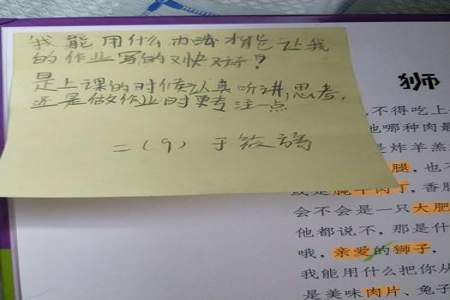 我能用什么办法才能让我
的作业写的又快又好？
是上课的时候认真听讲，思考，
还是做作业时更专注一点
二（9）于筱
狮
，不得吃上
他哪种肉最
是炸羊羔
腿，也不
或是腌牛肉丁，香肠
会不会是一只大肥
他都说不，那是什
哦，亲爱的狮子，
我能用什么把你从
是美味肉片、兔子